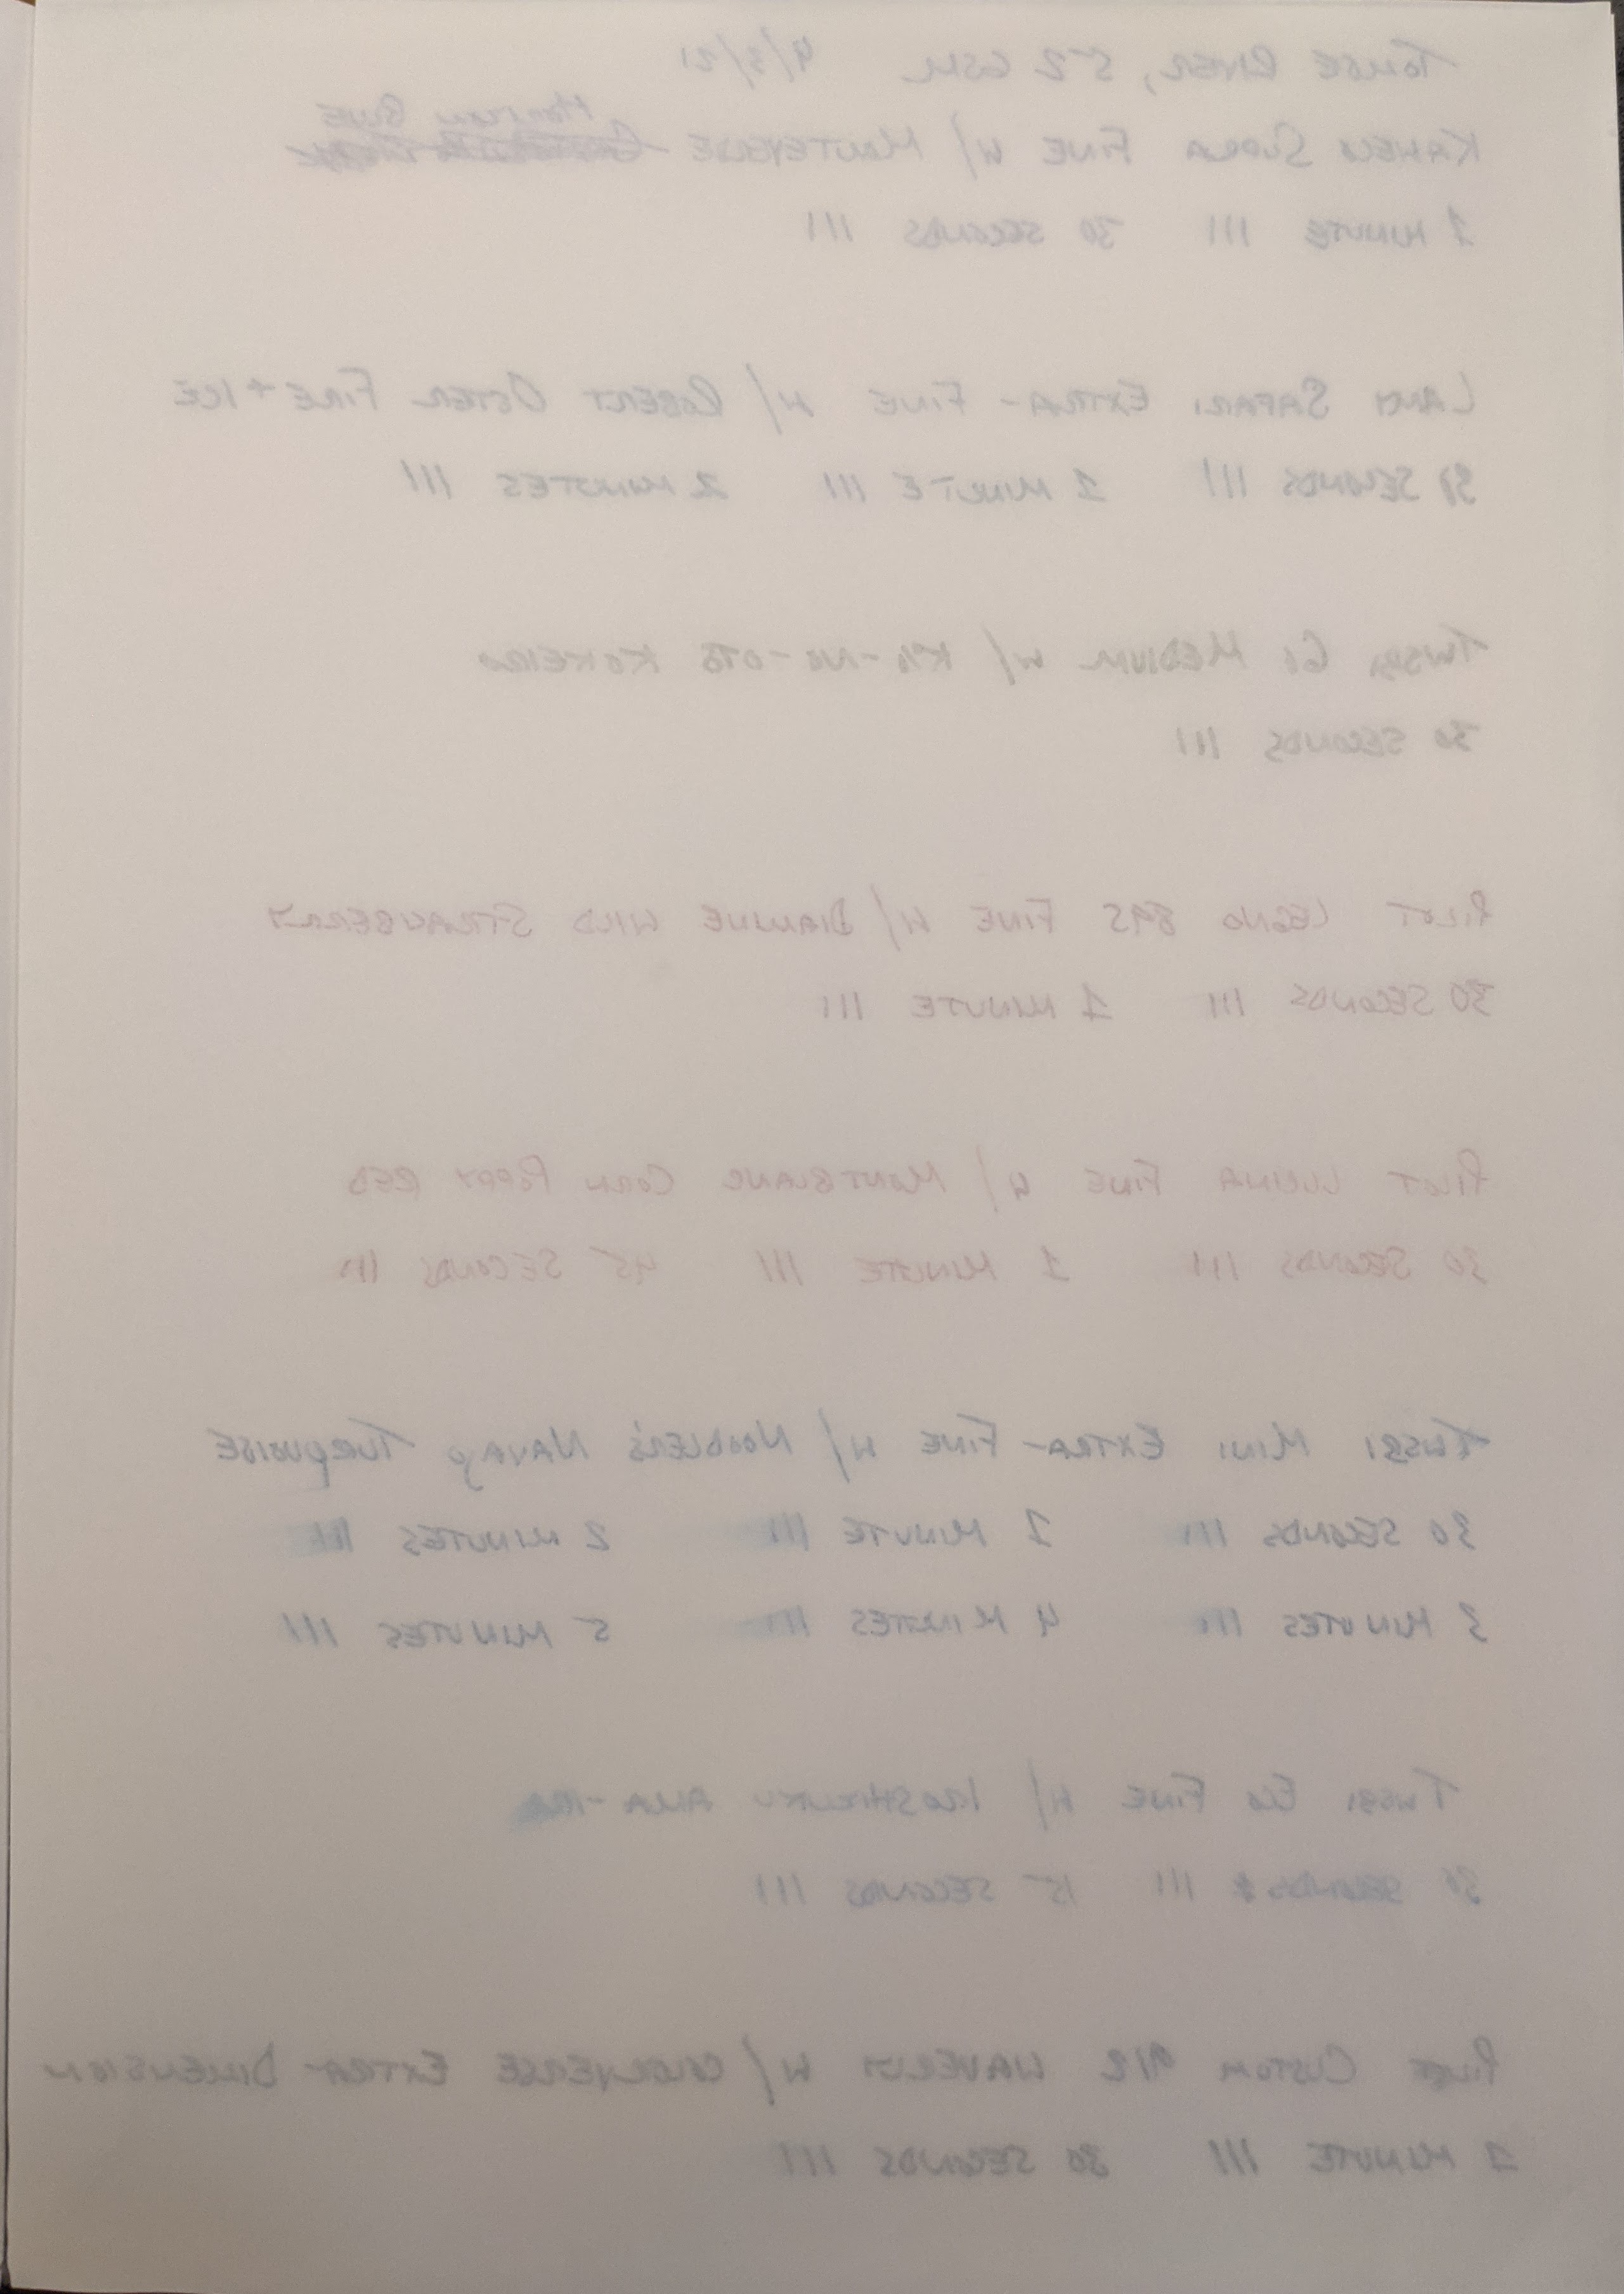 Tomoe River, 52 GSM 4/3/21
Horizon Blue
Kaweco Supra Fine w/ Monteverde
1 minute ||| 30 seconds |||
Lamy Safari Extra-Fine w/ Robert Oster Fire + Ice
30 seconds ||| 1 minute ||| 2 minutes |||
Twsbi Go Medium w/ Kyo-no-oto Kokeiro
30 seconds |||
Pilot Legno 89s Fine w/ Diamine Wild Strawberry
30 seconds ||| 1 minute |||
Pilot Lucina Fine w/ Montblanc Corn Poppy Red
30 seconds ||| 1 minute ||| 45 seconds |||
Twsbi Mini Extra-Fine w/ Noodler's Navajo Turquoise
30 seconds ||| 1 minute ||| 2 minutes |||
3 minutes ||| 4 minutes ||| 5 minutes |||
Twsbi Eco Fine w/ Iroshizuku Ama-iro
30 seconds ||| 15 seconds |||
Pilot Custom 912 Waverly w/ Colorverse Extra Dimension
1 minute ||| 30 seconds |||